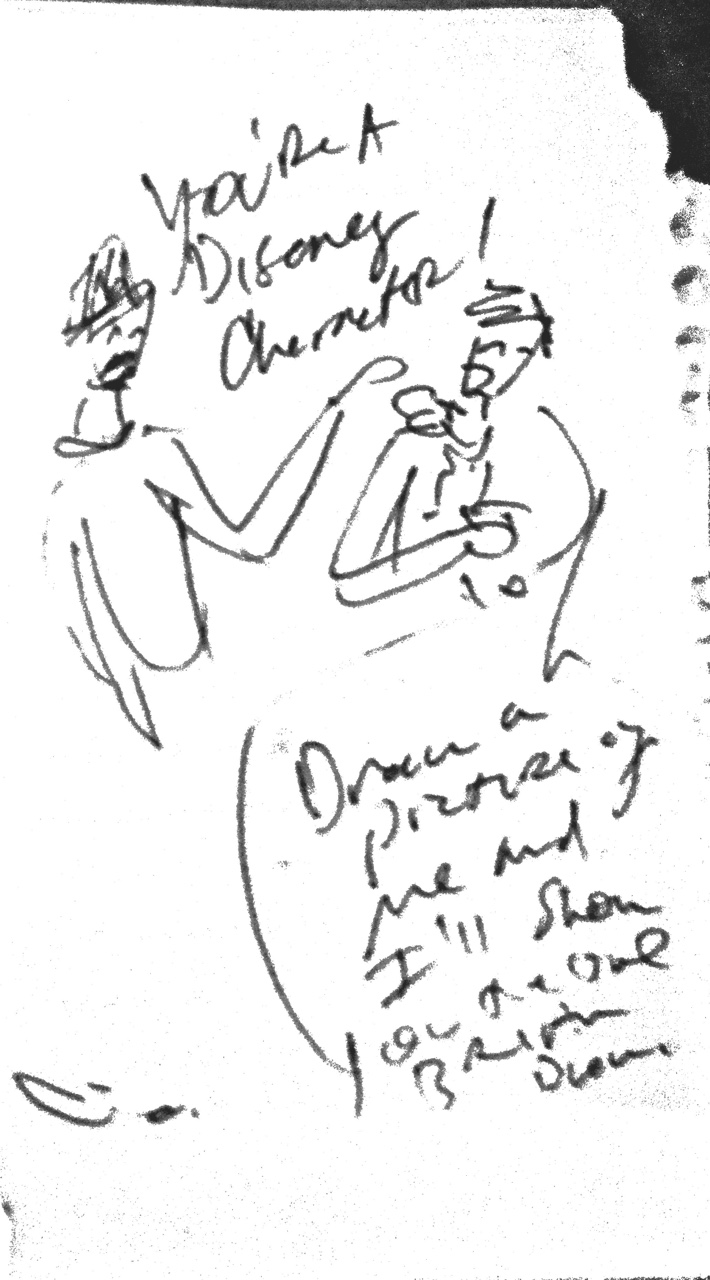 You're A
Disney
Character!
Draw a
picture of
me and
I'll Show
you the one
Drew.